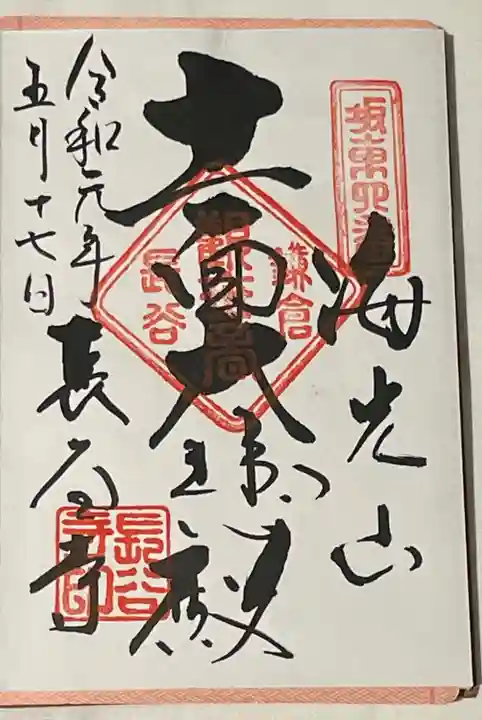 坂東四番
海光山
十一面大悲殿
鎌倉
観世音
長谷
令和元年
五月十七日
長谷寺
長谷寺印